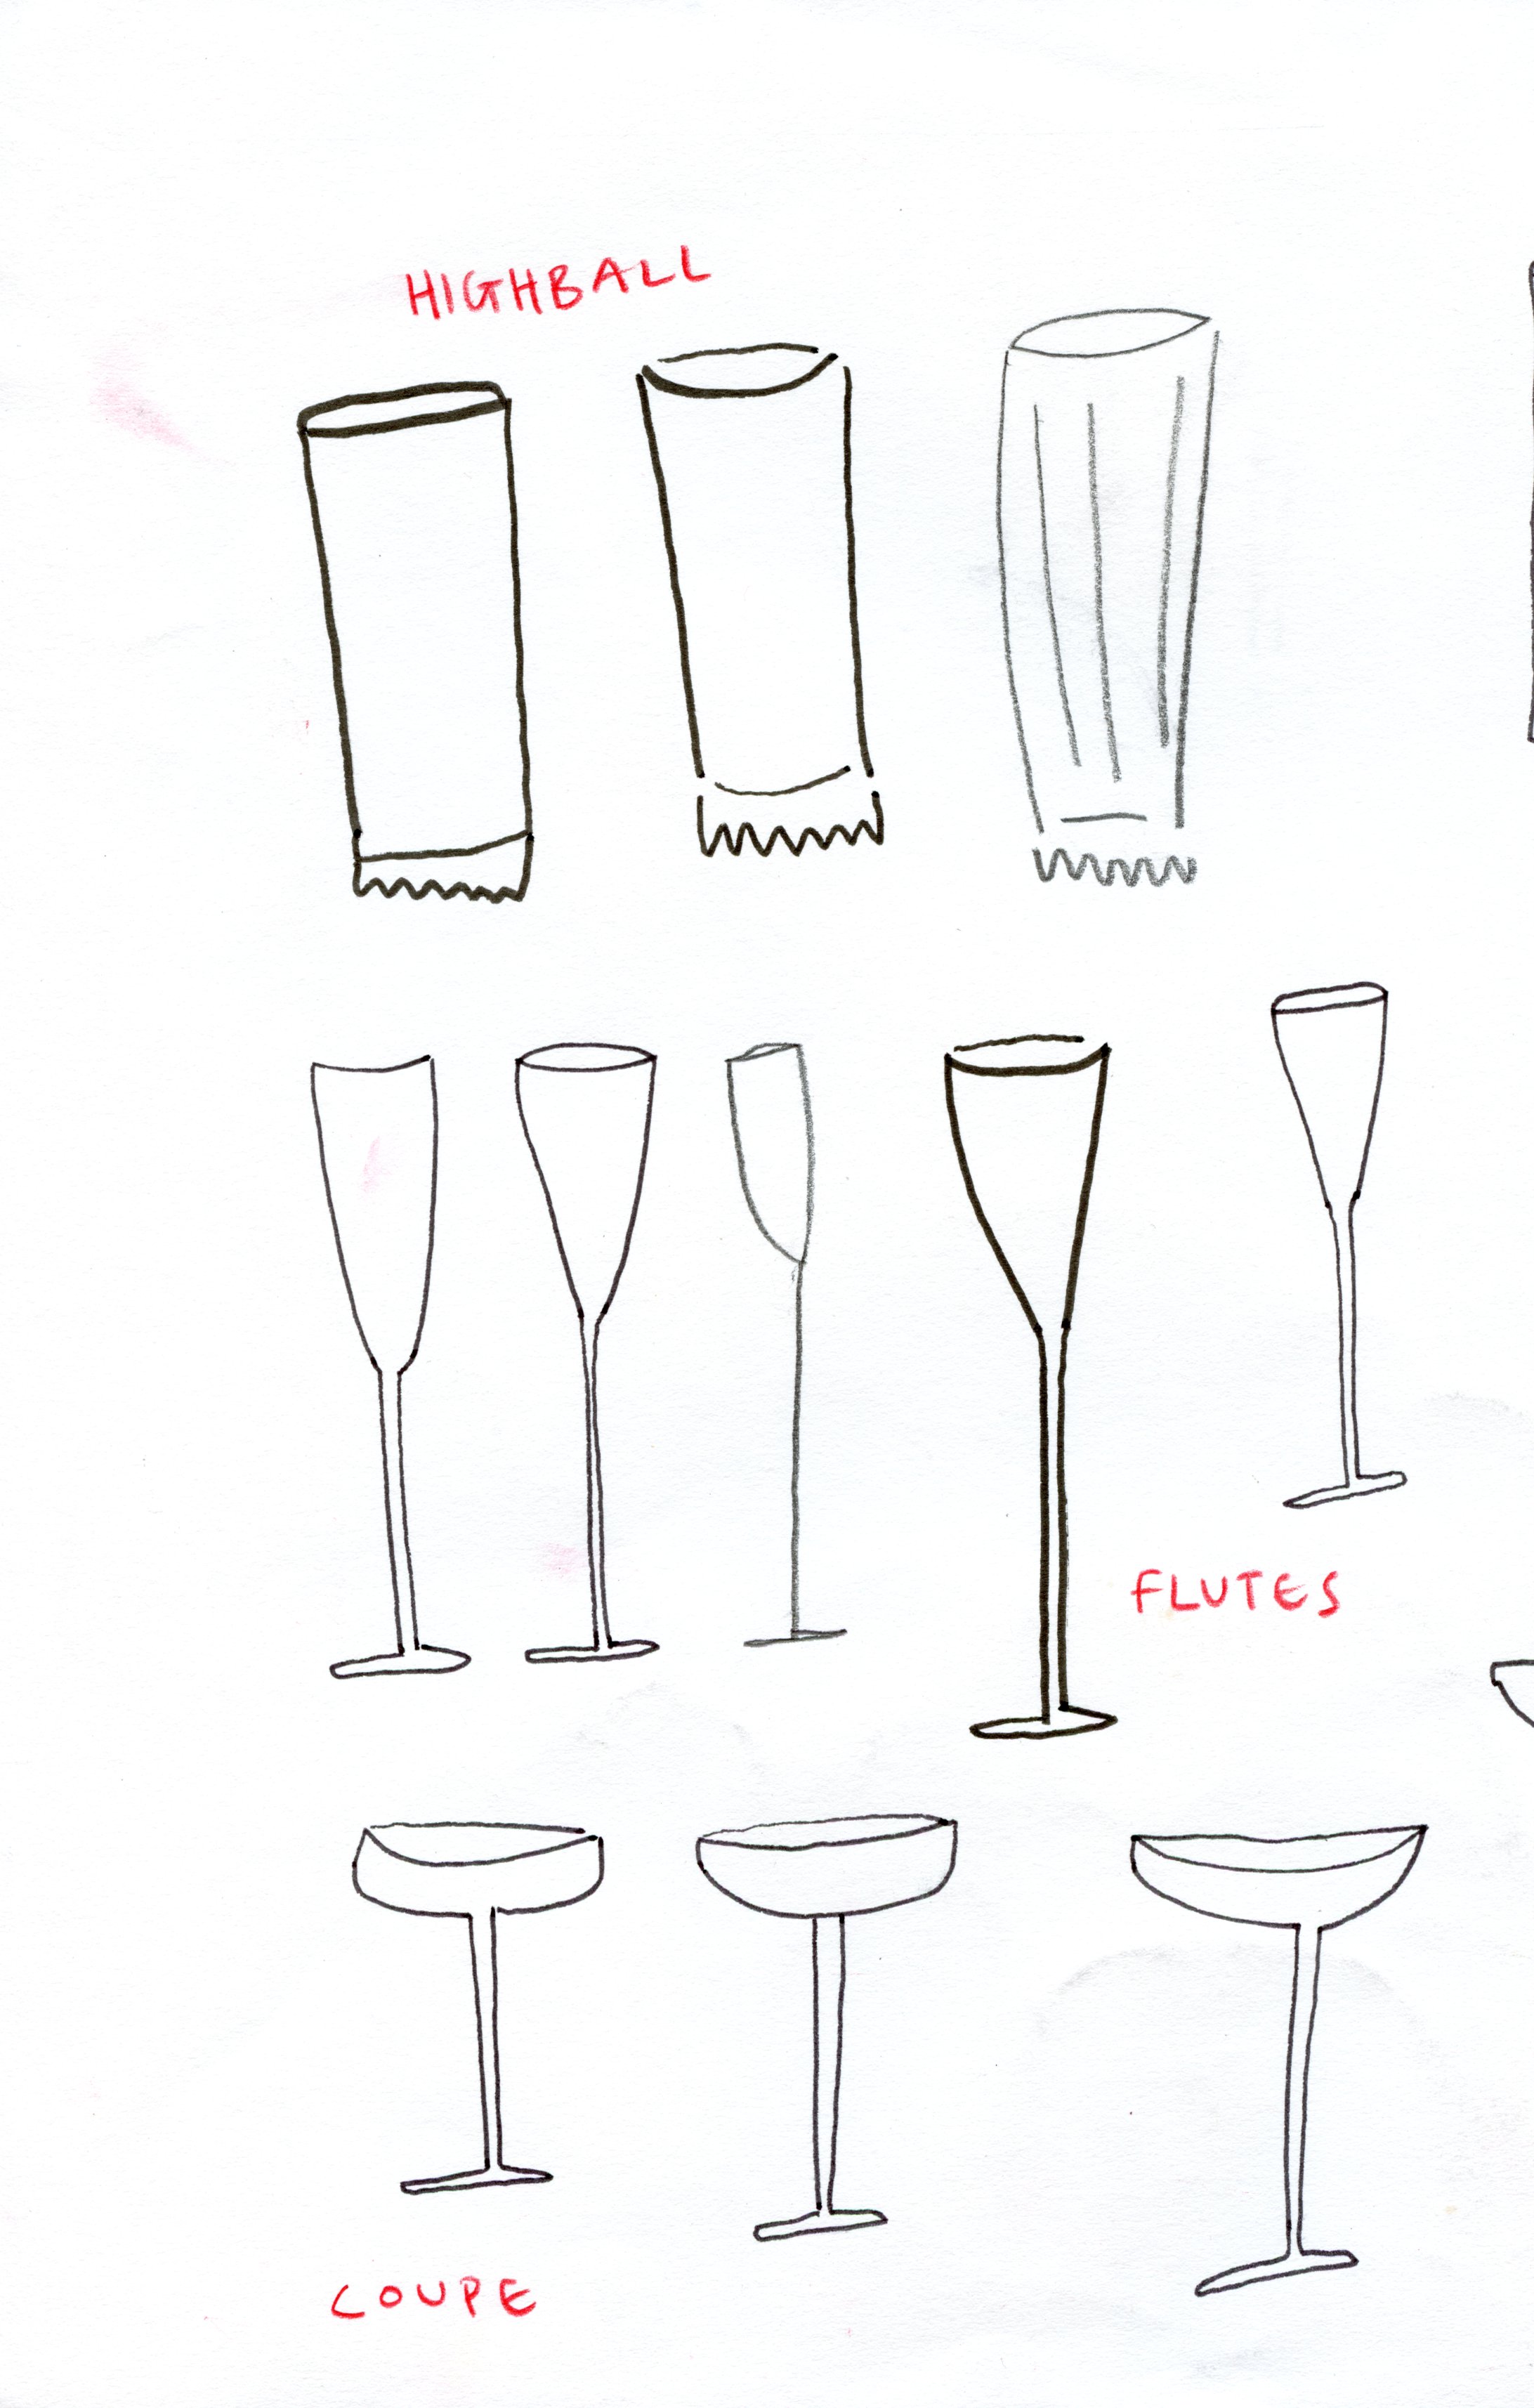 HIGHBALL
FLUTES
COUPE